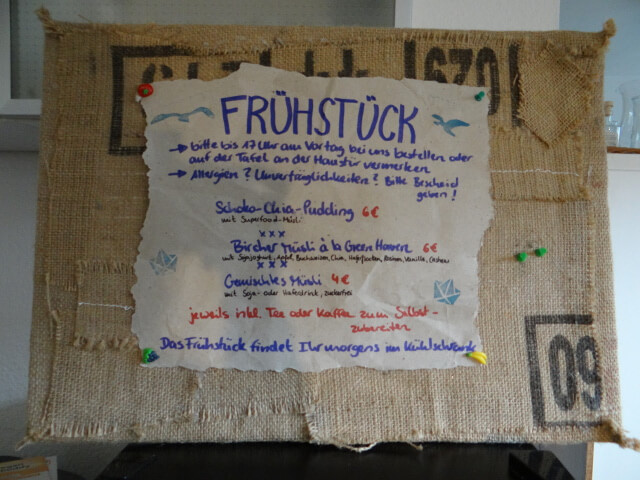 FRÜHSTÜCK
→ bitte bis 17 Uhr am Vortag bei uns bestellen oder
auf der Tafel an der Haustür vermerken
→ Allergien? Unverträglichkeiten? Bitte Bescheid
geben!
Schoko-Chia-Pudding 6€
mit Superfood-Müsli
xxx
Bircher Müsli à la Green Haven 6€
mit Sojajoghurt, Apfel, Buchweizen, Chia, Haferflocken, Rosinen, Vanille, Cashew
xxx
Gemischtes Müsli 4€
mit Soja- oder Haferdrink, zuckerfrei
jeweils inkl. Tee oder Kaffee zum Selbst-
zubereiten
Das Frühstück findet Ihr morgens im Kühlschrank
670
09